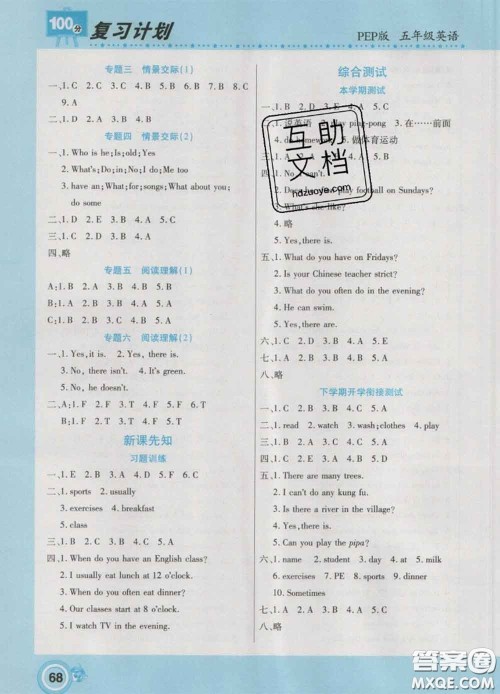 100分 复习计划
PEP版 五年级英语
专题三 情景交际(1)
一、1. C 2. C 3. A 4. B 5. A 6. B 7. B 8. C
9. A
专题四 情景交际(2)
一、1. Who is he;is;old;Yes
2. What's;Do;in;No;I do;Me too
3. have an;What;for;songs;What about you;
do some
二、1. D 2. D 3. C 4. E 5. A
三、1. C 2. A 3. B 4. B 5. A
四、略
专题五 阅读理解(1)
A:1. B 2. A 3. B 4. A 5. C
B:1. C 2. B 3. A 4. C 5. A
专题六 阅读理解(2)
一、1. Yes,it is. 2. Yes, there is.
3. No, there isn't. 4. It's green.
5. No, he doesn't.
二、A:1. F 2. F 3. T 4. T 5. F
B:1. F 2. T 3. T 4. T 5. F
新课先知
习题训练
一、1. E 2. B 3. A 4. D 5. F 6. C
二、1. sports 2. usually
3. exercises 4. breakfast
5. class
三、1. B 2. C 3. A 4. B 5. C
四、1. When do you have an English class?
2. I usually eat lunch at 12 o'clock.
3. When do you often eat dinner?
4. Our classes start at 8 o'clock.
5. I watch TV in the evening.
68
综合测试
本学期测试
一、1. B 2. D 3. E 4. A 5. C
二、1. 说英语 2. play ping-pong 3. 在……前面
4. do homework 5. 做体育运动
三、1. B 2. A
play football on Sundays?
she like?
4. 略
5. Yes,there is.
五、1. What do you have on Fridays?
2. Is your Chinese teacher strict?
3. What do you often do in the evening?
4. He can swim.
5. Yes, there is.
六、1. C 2. D 3. A 4. B 5. E
七、1. A 2. B 3. C 4. B 5. A
八、略
下学期开学衔接测试
一、1. C 2. D 3. A 4. E 5. B
二、1. read 2. watch 3. wash;clothes 4. play
三、1. A 2. B 3. C 4. A 5. B
四、1. B 2. C 3. A 4. E 5. D
五、1. There are many trees.
2. I can't do any kung fu.
3. Is there a river in the village?
4. Yes,there is.
5. Can you play the pipa?
六、1. name 2. student 3. day 4. at 5. milk
6. exercises 7. PE 8. sports 9. dinner
10. Sometimes
七、1. A 2. C 3. B 4. B 5. A
八、略
互助
文档
hdzuoye.com
答案圈
MXQE.COM